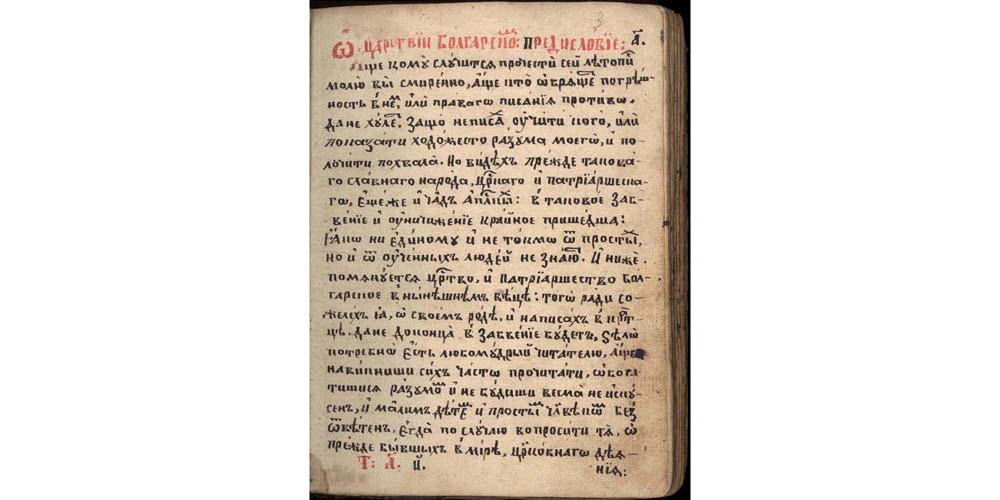 Ѡ царствїи болгарскомъ: предисловїе: а҃.
Аще кому случится прочести сей лѣтопи
молю вы смиренно, аще что ѡбрящете погрѣш
ность в не, или праваго писанїя противо.
да не хуле. защо не писа ѹчити кого, или
показати художество разума моегѡ, и по
лучити похвала. Но видѣхъ прежде такова
го славнаго народа, црскаго и патрїаршеска
гѡ, еще же и чадъ апл: в таковое заб
венїе и ѹничиженїе крайное пришедша:
Ꙗко ни единому и не токмѡ ѿ просты,
но и ѿ ѹченныхъ людей не знаю. И ниже
помянуется црство, и патрїаршество бол
гарское в нынѣшнемъ вѣцѣ: тогѡ ради со
желѣхъ ꙗ, ѡ своемъ родѣ, и написахъ в крат
цѣ. да не доконца в забвенїе будетъ, ѕѣлѡ
потребнѡ есть любомудрый читателю, аще
навикниши сихъ часто прочитати, ѡбога
тишися разумо и не будиши весма неиску
сенъ, и малимъ дѣте и просты члвѣкѡ без
ѿвѣтенъ. егда по случаю вопросити тя, ѡ
прежде бывшихъ в мирѣ, црковнаго дѣя-
Т: А: И. нїя: